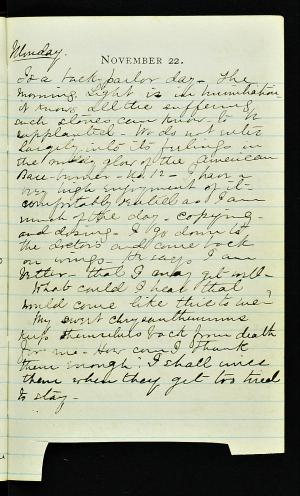 Monday.
NOVEMBER 22.
Is a back-parlor day. The
morning light is in humiliation
it knows all the suffering
such stoves can know to be
supplanted. We do not enter
largely into its feelings in
the ruddy glow of the American
Base-burner - No 12 - I have a
very high enjoyment of it -
comfortably as I am
much of the day - copying -
and dozing. I go down to
the doctors and come back
on wings. He says I am
better - that I may get well.
What could I hear that
would come like this to me?
My sweet chrysanthemums
keep themselves back from death
for me. How can I thank
them enough! I shall miss
them when they get too tired
to stay.